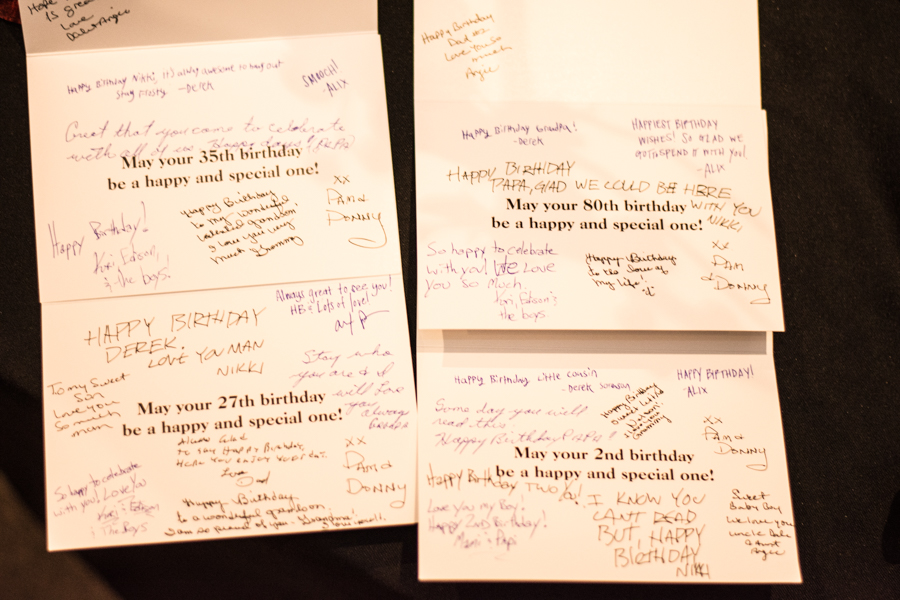 Love
Happy Birthday Nikki, It's always awesome to hang out
Stay frosty -Derek
SMOOCH!
-ALIX
Great that you come to celebrate
with all of us
May your 35th birthday
be a happy and special one!
Happy Birthday
to my wonderful
grandson!
I love you very
much Grammy
XX
PAM &
DONNY
Happy Birthday!
Kari, Edison,
& the boys!
Always great to see you!
HB & Lots of love!
HAPPY BIRTHDAY
DEREK.
LOVE YOU MAN
NIKKI
Stay who
you are & I
will love
you always
To my Sweet
Son
Love you
so much
mom
May your 27th birthday
be a happy and special one!
to say Happy Birthday,
Hope you enjoy your day.
Love
Dad
XX
PAM &
DONNY
So happy to celebrate
with you! Love You
& The Boys
Happy Birthday
to a wonderful grandson
I am so proud of you
Happy Birthday
Dad
Love You so
much
Angie
Happy Birthday Grandpa!
-Derek
HAPPIEST BIRTHDAY
WISHES! SO GLAD WE
GOT TO SPEND IT WITH YOU!
-ALIX
HAPPY BIRTHDAY
PAPA, GLAD WE COULD BE HERE
WITH YOU
NIKKI
May your 80th birthday
be a happy and special one!
So happy to celebrate
with you! We Love
You so much.
Kari, Edison &
the boys
Happy Birthday
to the Love of
my life!
XX
PAM
& DONNY
Happy Birthday Little cousin
-Derek Sorenson
HAPPY BIRTHDAY!
-ALIX
Some day you will
read this.
Happy Birthday PaPa!
Happy Birthday
XX
PAM &
DONNY
May your 2nd birthday
be a happy and special one!
Happy Birthday Two you!
Love you my Boy!
Happy 2nd Birthday!
Mami & Papi
I KNOW YOU
CANT READ
BUT, HAPPY
BIRTHDAY
NIKKI
Sweet
Baby Boy
We love you
Uncle Dale
& Aunt
Angie